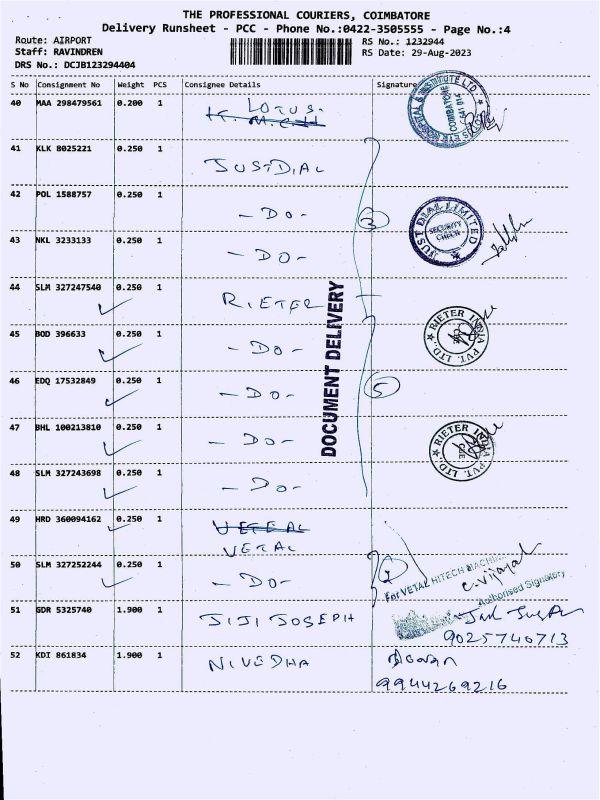 THE PROFESSIONAL COURIERS, COIMBATORE
Delivery Runsheet - PCC - Phone No.:0422-3505555 - Page No.:4
Route: AIRPORT
Staff: RAVINDREN
DRS No.: DCJB123294404
RS No.: 1232944
RS Date: 29-Aug-2023
S No Consignment No Weight PCS Consignee Details Signature
40 MAA 298479561 0.200 1 LOTUS
41 KLK 8025221 0.250 1 JUSTDIAL
42 POL 1588757 0.250 1 - DO -
43 NKL 3233133 0.250 1 - DO -
3
JUST DIAL LIMITED
SECURITY CHECK
44 SLM 327247540 0.250 1 RIETER
45 BOD 396633 0.250 1 - DO -
RIETER INDIA PVT. LTD.
46 EDQ 17532849 0.250 1 - DO -
5
DOCUMENT DELIVERY
47 BHL 100213810 0.250 1 - DO -
RIETER INDIA PVT. LTD.
48 SLM 327243698 0.250 1 - DO -
49 HRD 360094162 0.250 1 VETAL
VETAL
50 SLM 327252244 0.250 1 - DO -
For VETAL HITECH MACHIN
Authorised Signatory
51 GDR 5325740 1.900 1 JIJI JOSEPH
9025740713
52 KDI 861834 1.900 1 NIVEDHA
9944269216